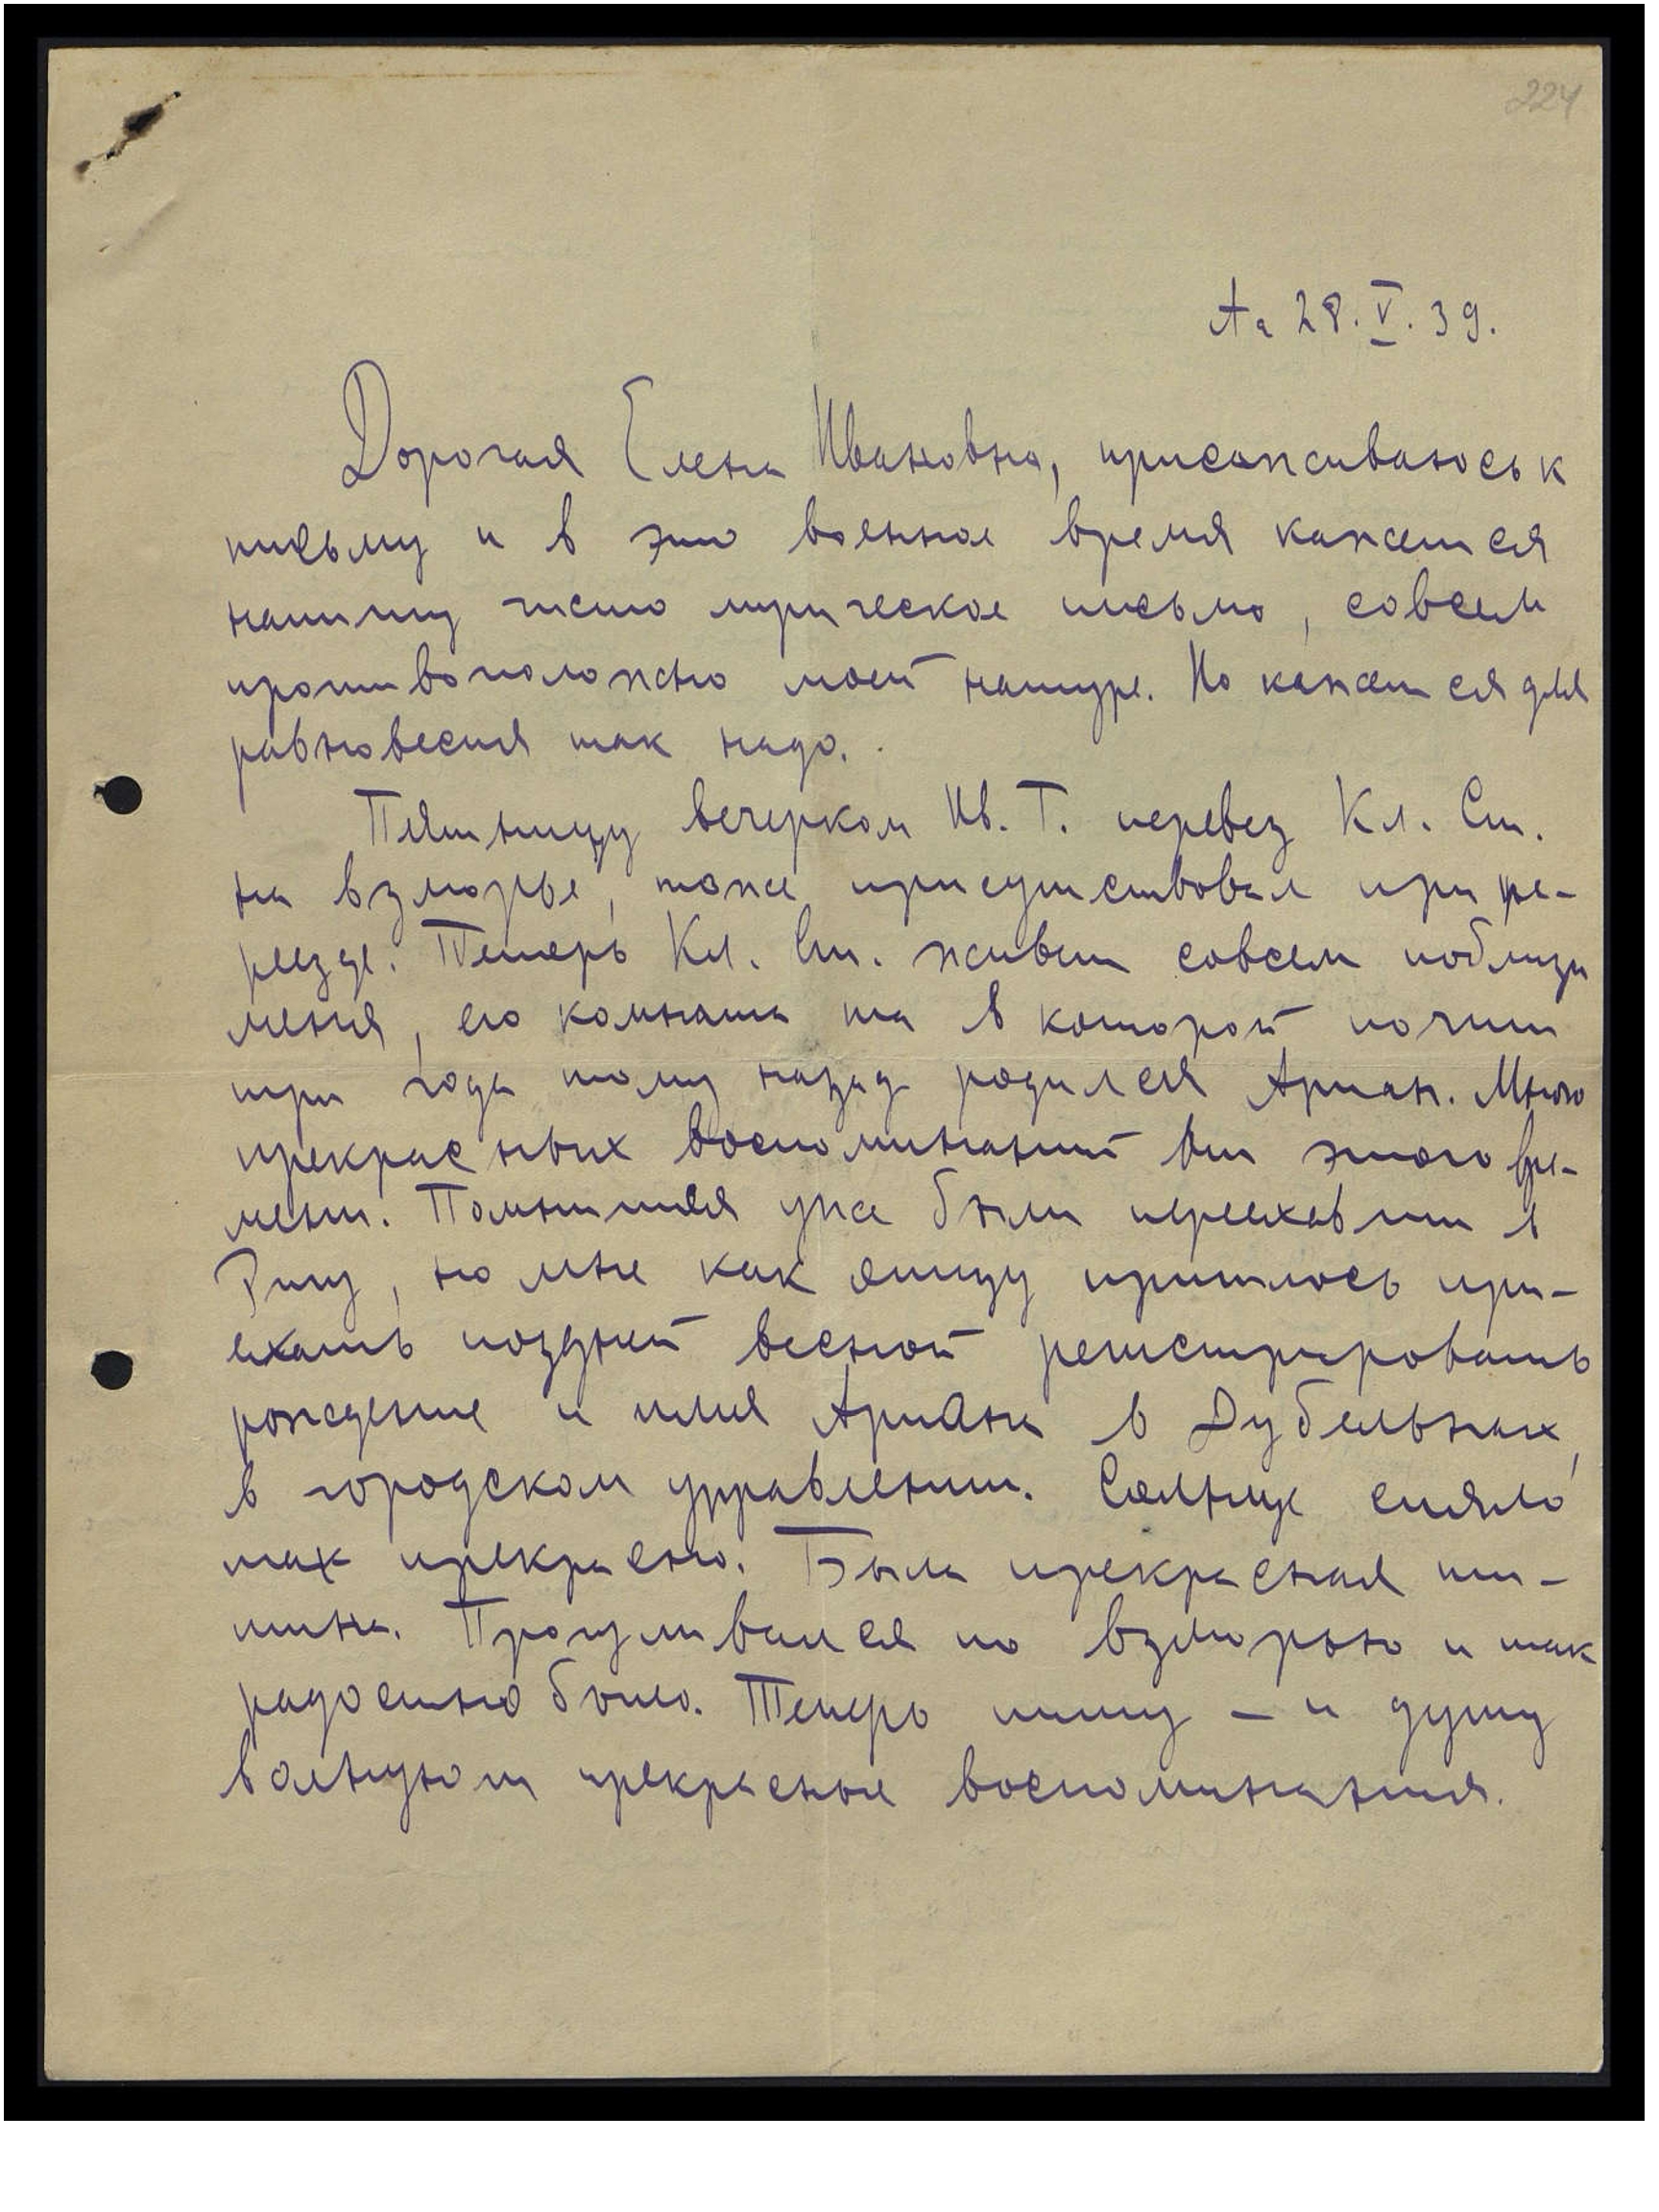 224
Аа 28.V.39.
Дорогая Елена Ивановна, присаживаюсь к
письму и в это военное время кажется
напишу чисто лирическое письмо, совсем
противоположно моей натуре. Но кажется для
равновесия так надо.
Пятницу вечерком Ив. Г. перевез Кл. Ст.
на взморье, тоже присутствовал при пе-
реезде. Теперь Кл. Ст. живет совсем поблизи
меня, его комната та в которой почти
три года тому назад родился Ариан. Много
прекрасных воспоминаний от этого вре-
мени. Помнится уже были переехавши в
Ригу, но мне как отцу пришлось при-
ехать поздней весной регистрировать
рождение и имя Ариана в Дубельнах,
в городском управлении. Солнце сияло
так прекрасно. Была прекрасная ти-
шина. Прогуливался по взморью и так
радостно было. Теперь пишу – и душу
волнуют прекрасные воспоминания.